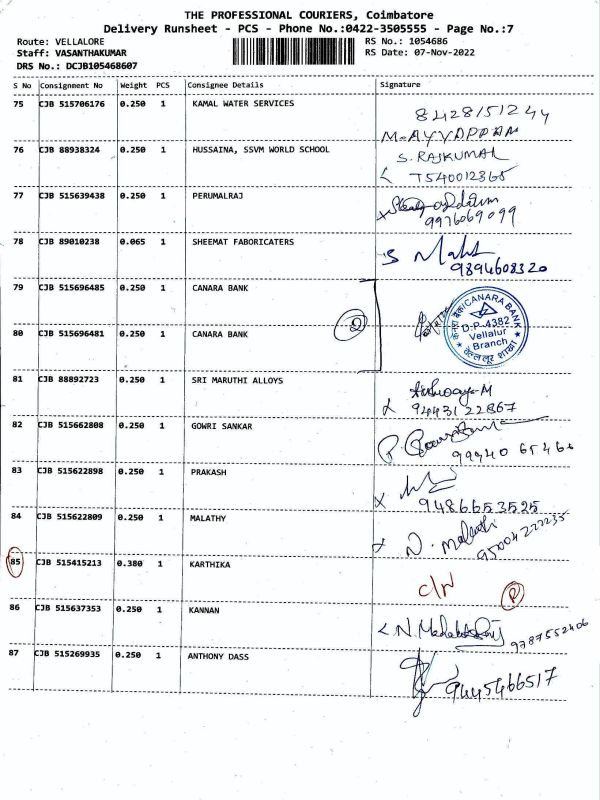 THE PROFESSIONAL COURIERS, Coimbatore
Delivery Runsheet - PCS - Phone No.:0422-3505555 - Page No.:7
Route: VELLALORE
RS No.: 1054686
Staff: VASANTHAKUMAR
RS Date: 07-Nov-2022
DRS No.: DCJB105468607
S No Consignment No Weight PCS Consignee Details Signature
75 CJB 515706176 0.250 1 KAMAL WATER SERVICES 8428151244
M.AYYAPPAN
76 CJB 88938324 0.250 1 HUSSAINA, SSVM WORLD SCHOOL S. RAJKUMAR
7540012865
77 CJB 515639438 0.250 1 PERUMALRAJ
9976069099
78 CJB 89010238 0.065 1 SHEEMAT FABORICATERS S
9894608320
79 CJB 515696485 0.250 1 CANARA BANK
2
केनरा बैंक/CANARA BANK
D.P-4382
Vellalur
Branch
वेल्लूर शाखा
80 CJB 515696481 0.250 1 CANARA BANK
81 CJB 88892723 0.250 1 SRI MARUTHI ALLOYS
9443122867
82 CJB 515662808 0.250 1 GOWRI SANKAR
99940 65466
83 CJB 515622898 0.250 1 PRAKASH
9486653525
84 CJB 515622809 0.250 1 MALATHY N. Malathi
9500422235
85 CJB 515415213 0.380 1 KARTHIKA
P
86 CJB 515637353 0.250 1 KANNAN
9787552406
87 CJB 515269935 0.250 1 ANTHONY DASS
9445466517